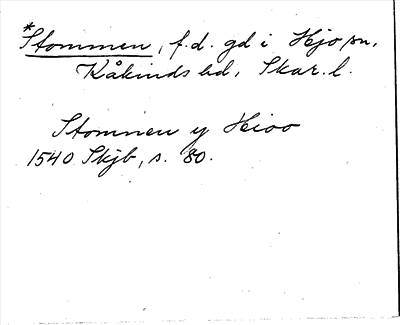 *Stommen, f.d. gd i Hjo sn,
Kåkinds hd, Skar. l.
Stomnen y Hioo
1540 Skjb, s. 80.